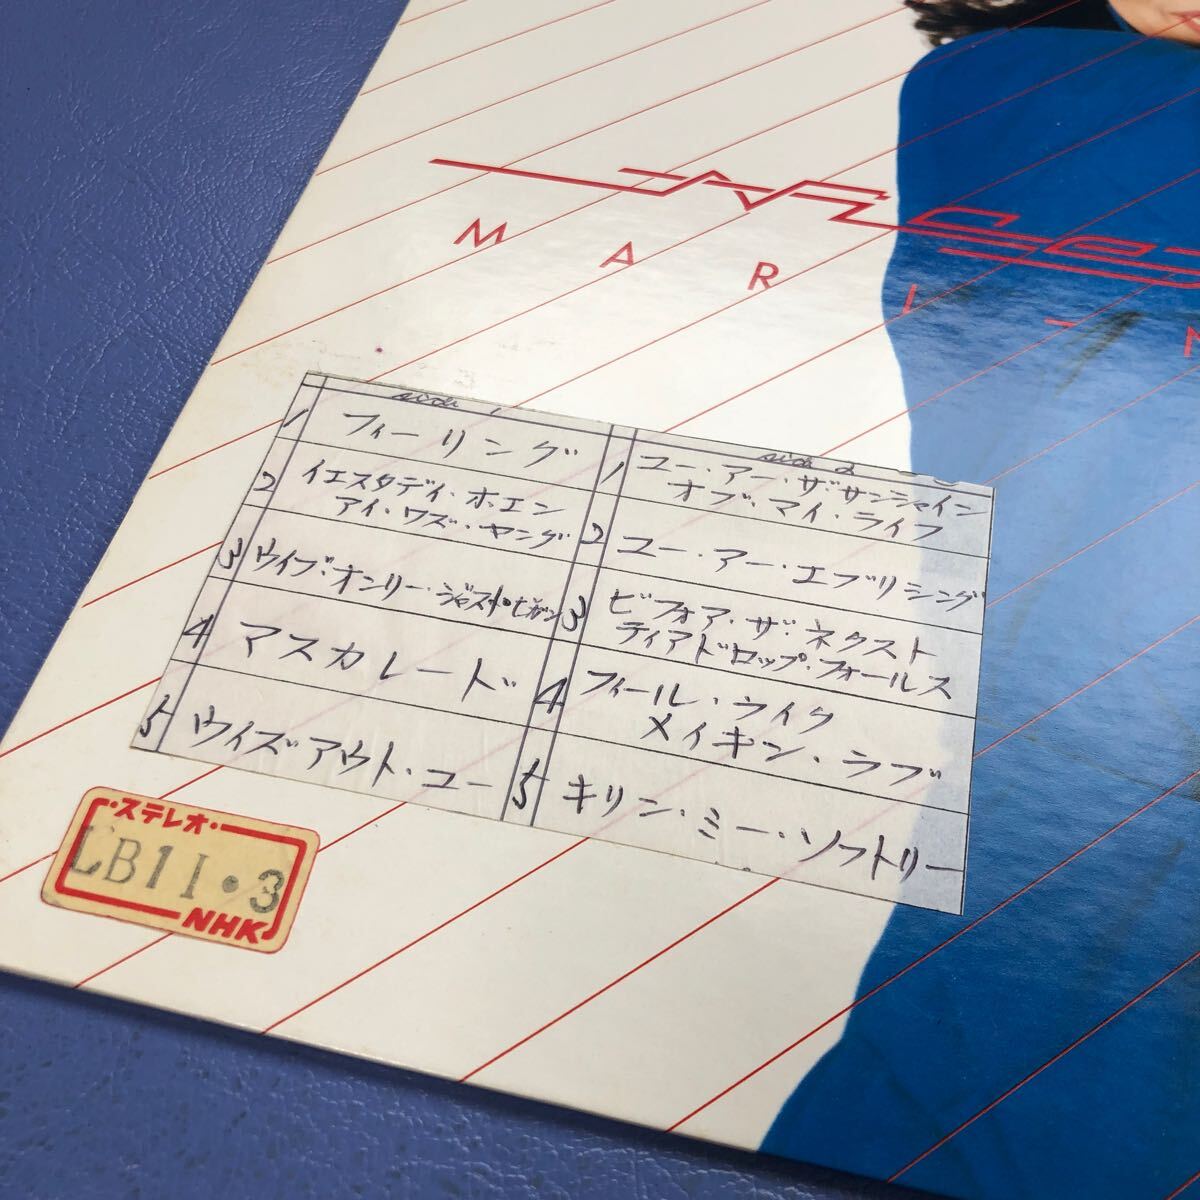 MARLIN
side 1
1 フィーリング
2 イエスタデイ・ホエン
アイ・ワズ・ヤング
3 ウイブ・オンリー・ジャスト・ビガン
4 マスカレード
5 ウイズアウト・ユー
side 2
1 ユー・アー・ザ・サンシャイン
オブ・マイ・ライフ
2 ユー・アー・エブリシング
3 ビフォア・ザ・ネクスト
ティアドロップ・フォールス
4 フィール・ライク
メイキン・ラブ
5 キリン・ミー・ソフトリー
・ステレオ・
LB11・3
NHK